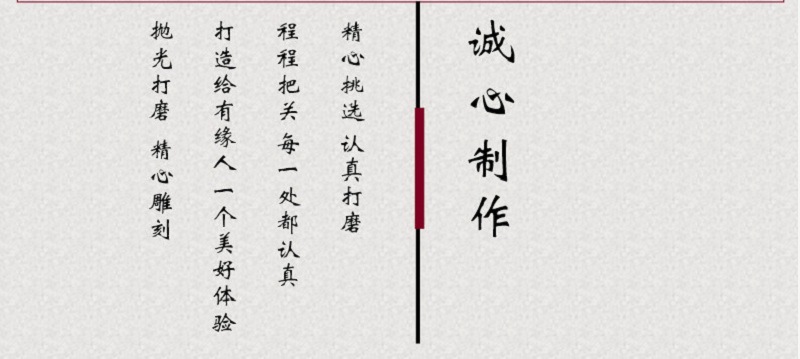 诚心制作
精心挑选 认真打磨
程程把关 每一处都认真
打造给有缘人一个美好体验
抛光打磨 精心雕刻